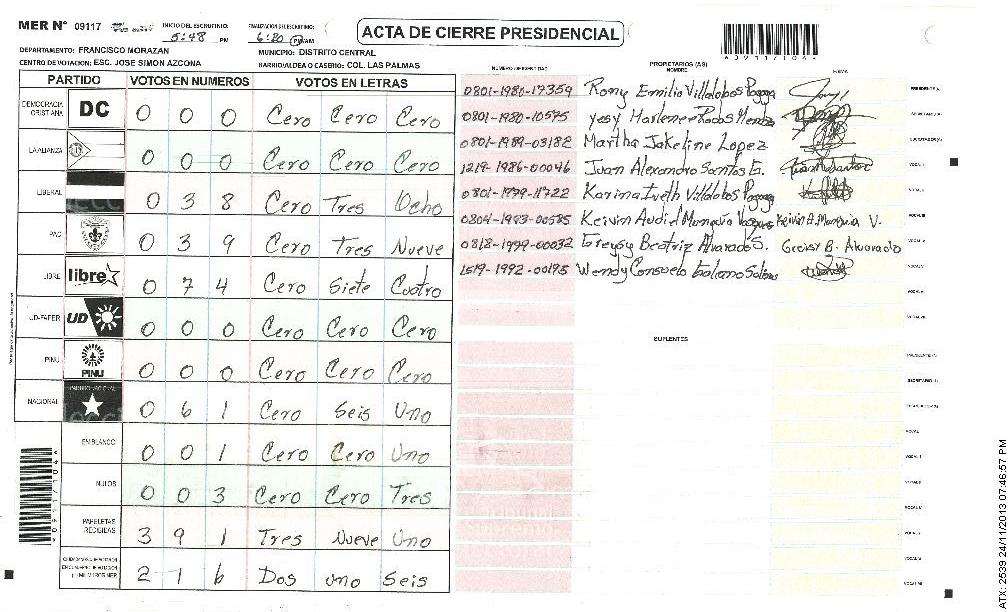 MER Nº 09117 INICIO DEL ESCRUTINIO: 5:48 PM FINALIZACION DEL ESCRUTINIO: 6:20 PM/AM
ACTA DE CIERRE PRESIDENCIAL
DEPARTAMENTO: FRANCISCO MORAZAN MUNICIPIO: DISTRITO CENTRAL
CENTRO DE VOTACION: ESC. JOSE SIMON AZCONA BARRIO/ALDEA O CASERIO: COL. LAS PALMAS
PARTIDO VOTOS EN NUMEROS VOTOS EN LETRAS
DEMOCRACIA CRISTIANA DC 0 0 0 Cero Cero Cero
LA ALIANZA 0 0 0 Cero Cero Cero
LIBERAL 0 3 8 Cero Tres Ocho
PAC 0 3 9 Cero Tres Nueve
LIBRE libre 0 7 4 Cero Siete Cuatro
UD-FAPER UD 0 0 0 Cero Cero Cero
PINU PINU 0 0 0 Cero Cero Cero
NACIONAL PARTIDO NACIONAL 0 6 1 Cero Seis Uno
EN BLANCO 0 0 1 Cero Cero Uno
NULOS 0 0 3 Cero Cero Tres
PAPELETAS RECIBIDAS 3 9 1 Tres Nueve Uno
2 1 6 Dos Uno Seis
NUMERO DE IDENTIDAD PROPIETARIOS (AS) NOMBRE FIRMA
0801-1980-17359 Rony Emilio Villalobos PRESIDENTE(A)
0801-1980-10575 Yesy Marlene Rodas SECRETARIO(A)
0801-1989-03182 Martha Jakeline Lopez
1219-1986-00046 Juan Alexandro Santos E. VOCAL I
0801-1979-11722 Karina Iveth Villalobos VOCAL II
0801-1993-00585 Keivin Audiel Munguia Vasquez Keivin A. Munguia V. VOCAL III
0818-1999-00032 Greysy Beatriz Alvarado S. Greisy B. Alvarado
1519-1992-00195 Wendy Consuelo VOCAL V
VOCAL VI
VOCAL VII
SUPLENTES
PRESIDENTE(A)
SECRETARIO(A)
VOCAL I
VOCAL II
ATX: 2539 24/11/2013 07:46:57 PM